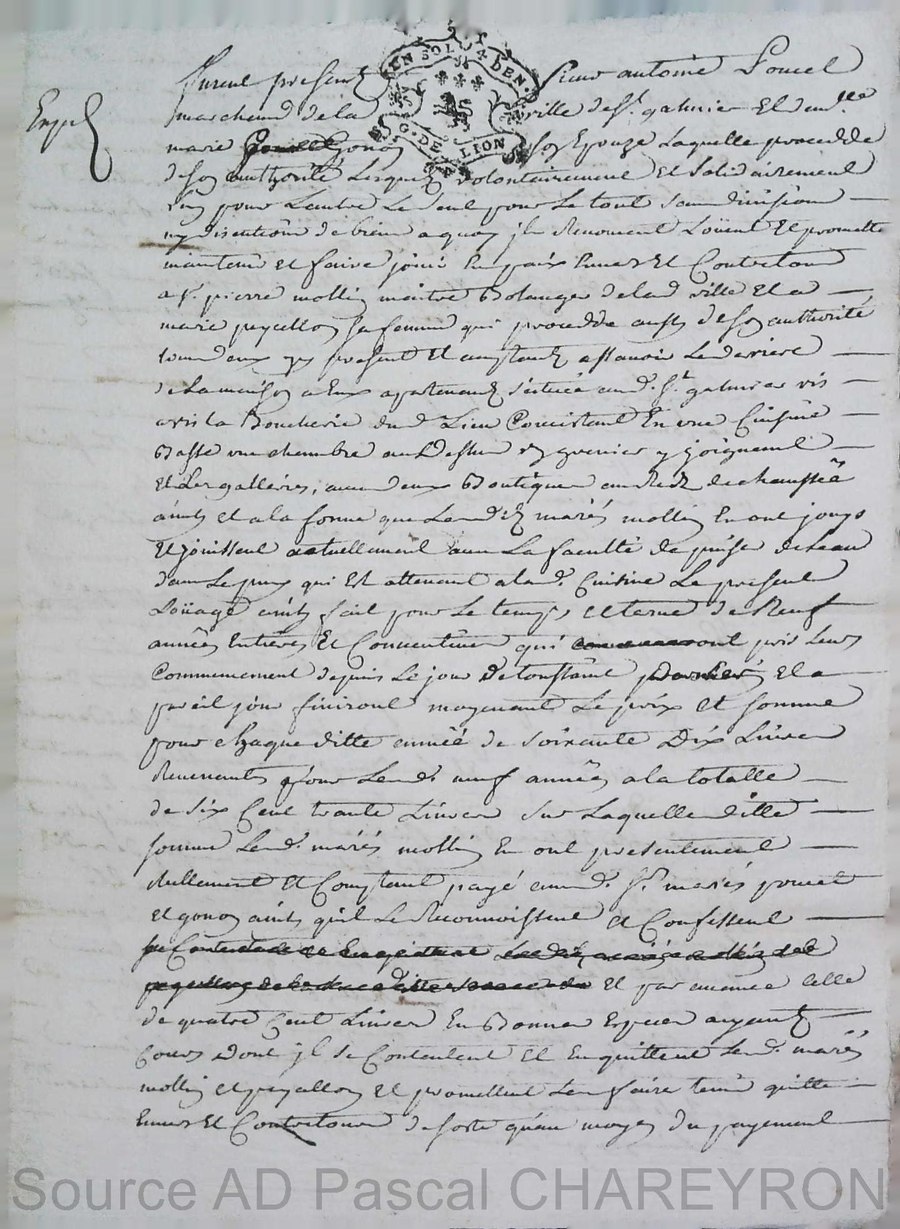 Expd
EN SOL 4 DEN.
G. DE LION
furent presents Sieur antoine Poncet
marchand de la ville de St galmier Et dlle
marie Gonon son Epouze Laquelle procedde
de son authorité Lesquels volontairement Et Solidairement
L'un pour Lautre Le seul pour Le tout Sans division
ny discution de biens a quoy jls Renoncent Loüent Et promette
maintenir Et faire joüir En paix Envers Et Contretous
a sr. pierre mollin maitre Bolanger de lad ville Et a
marie peycellon sa femme qui procedde aussy de son authorité
tous deux presents Et acceptants assavoir Le derriere
de La maison a Eux apartenant scituée aud. St galmier vis
avis la Boucherie dud Lieu Concistant En une Cuisine
Basse une chambre au Dessus un grenier y joignant
Et Les galleries, avec deux Boutiques au Rez de chaussée
ainsy et a la forme que Lesdits mariés mollin En ont jouys
Et joüissent actuellement avec La faculté de puiser de Leau
dans Le puy qui Est attenant a lad. Cuisine Le present
Loüage ainsy fait pour Le temps et terme de Neuf
années Entieres Et Consecutives qui ont pris Leurs
Commencement depuis Le jour de toussaint dernier Et a
pareil jour finiront moyenant Le prix et somme
pour chaque ditte année de soixante Dix Livres
Revenants pour Lesd. neuf années a la totalle
de six Cent trante Livres sur Laquelle ditte
somme Lesd. mariés mollin En ont presentement
Reellement Et Comptant payé auxd. srs mariés poncet
Et gonon ainsy quil Le Reconnoissent et Confessent
Et par avance Celle
de quatre Cent Livres En Bonnes Especes ayant
Cours dont jls se Contentent Et En quittent Lesd. mariés
mollin et peycellon Et promettent Les En faire tenir quitte
Envers Et Contretous de sorte qu'au moyen du payement
Source AD Pascal CHAREYRON